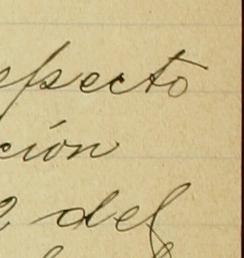 especto
ción
del